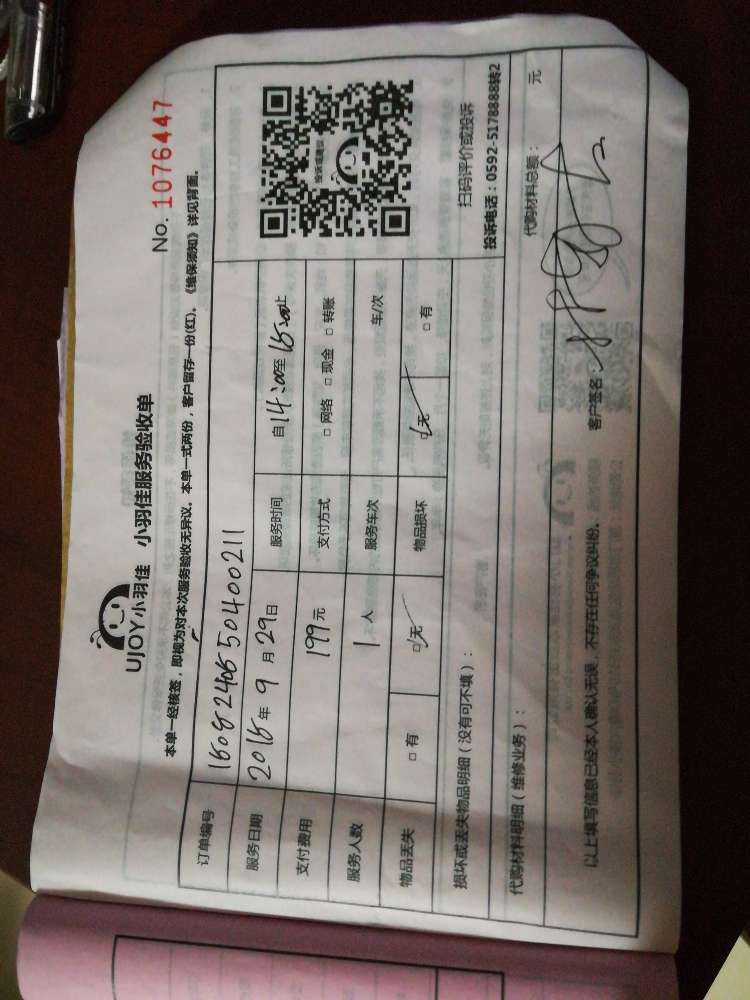 UJOY小羽佳 小羽佳服务验收单
No. 1076447
本单一经核签，即视为对本次服务验收无异议。本单一式两份，客户留存一份(红)。《维保须知》详见背面。
订单编号
服务日期 年 9 月 29 日 服务时间 自 14:00 至 止
支付费用 199 元 支付方式 □ 网络 □ 现金 □ 转账
服务人数 1 人 服务车次 车/次
物品丢失 □ 有 □ 无 物品损坏 □ 无 □ 有
投诉或建议
扫码评价或投诉
投诉电话：0592-5178888转2
损坏或丢失物品明细（没有可不填）：
代购材料明细（维修业务）： 代购材料总额： 元
以上填写信息已经本人确认无误，不存在任何争议纠纷。 客户签名：